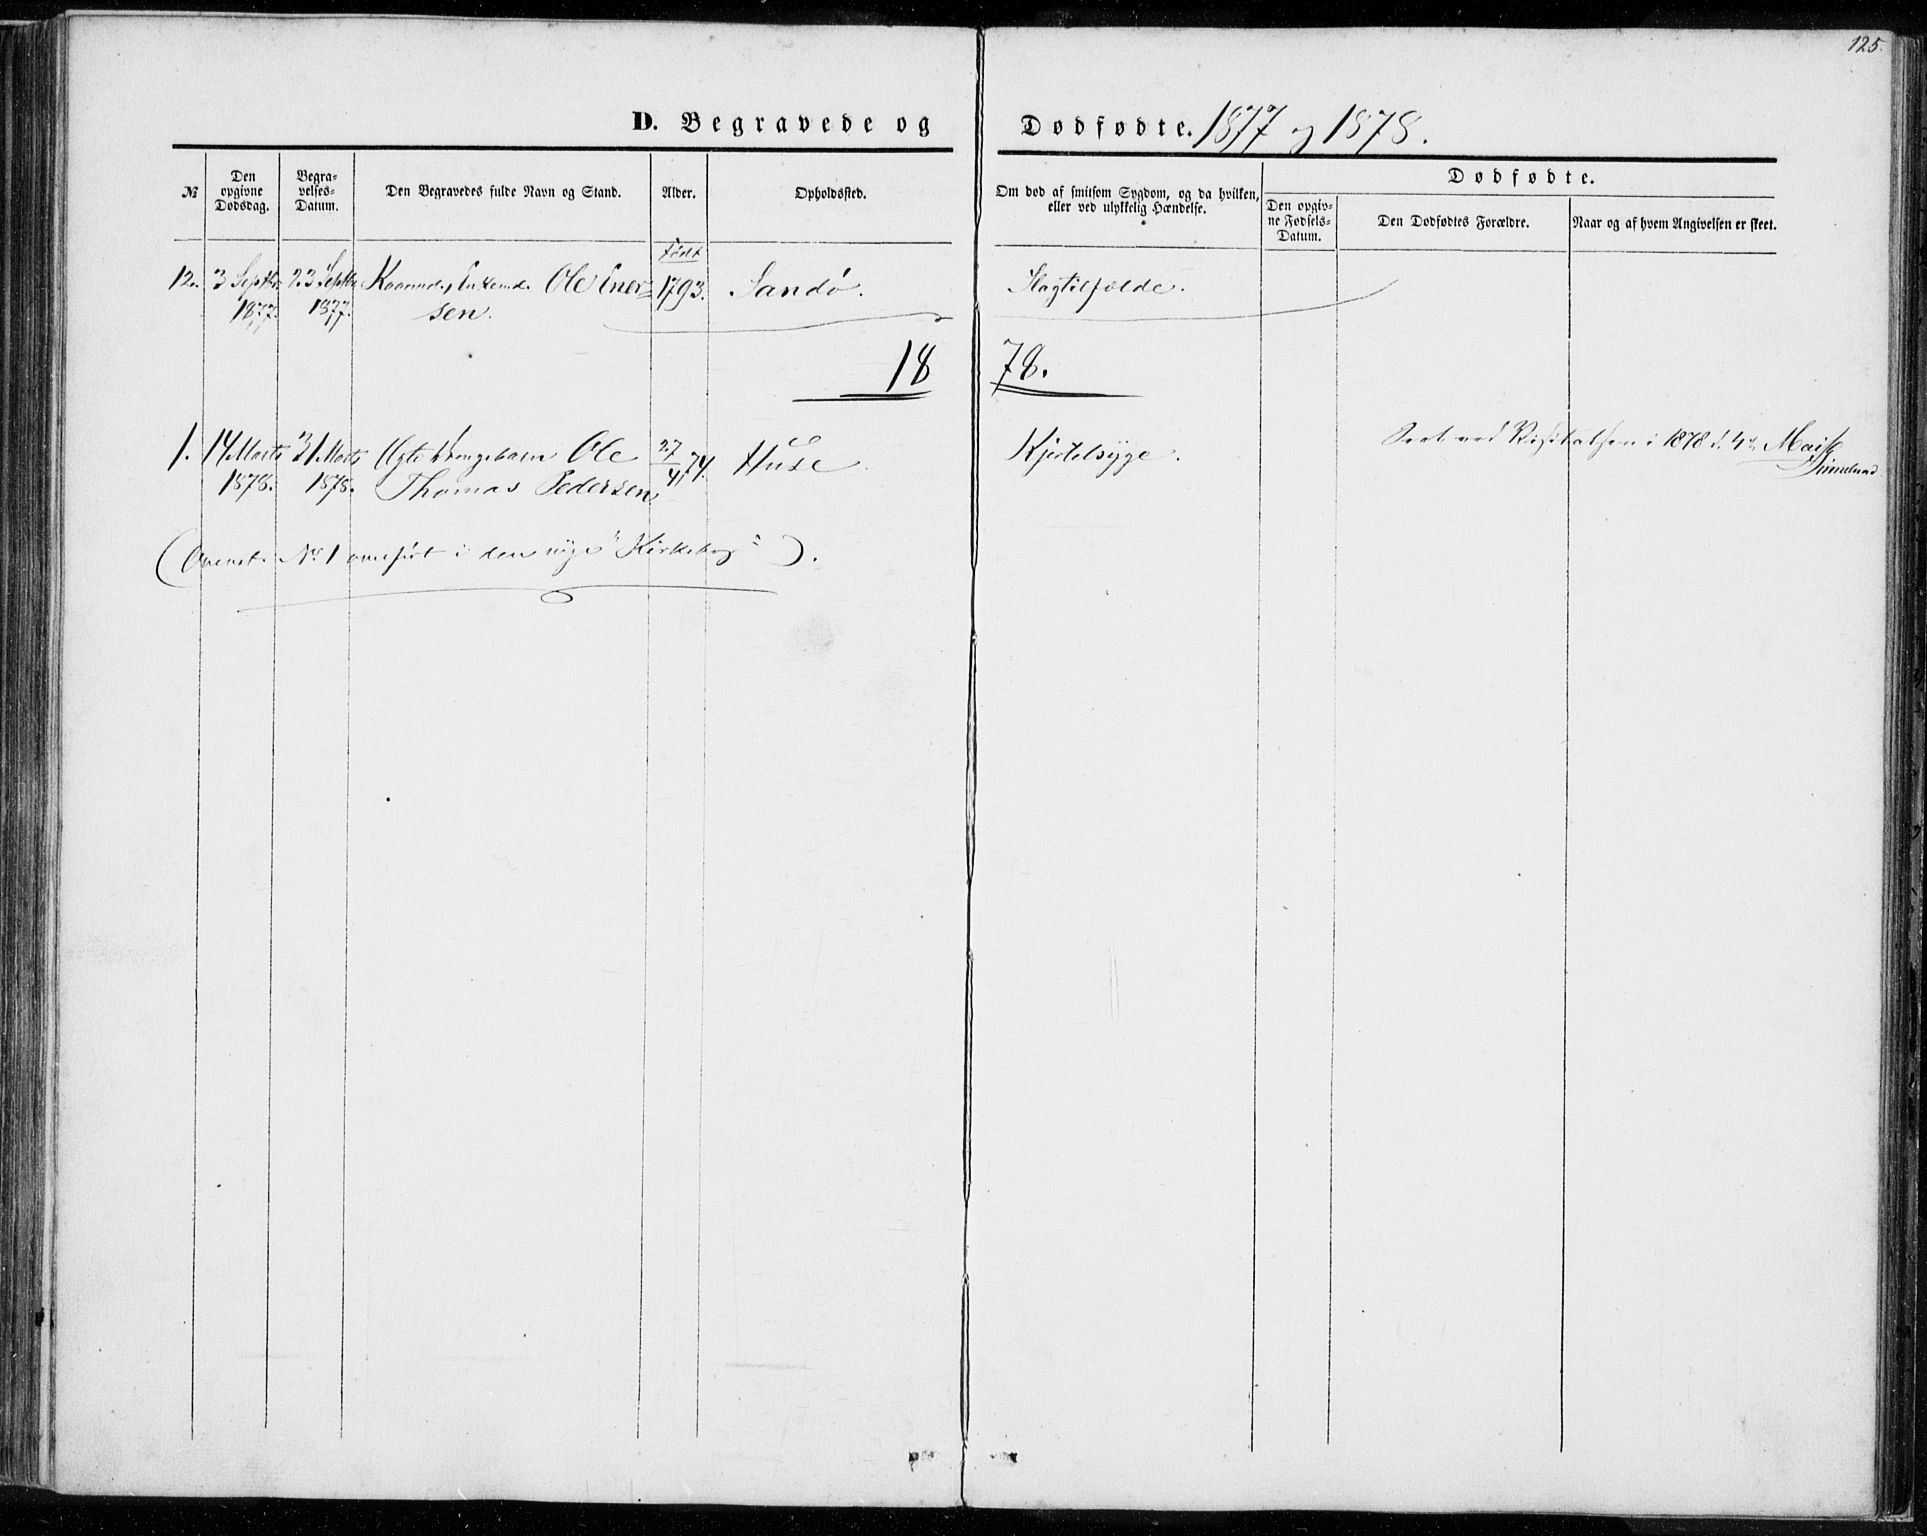 125.
D. Begravede og Dødfødte. 1877 og 1878.
№
Den opgivne Dødsdag.
Begravelses-Datum.
Den Begravedes fulde Navn og Stand.
Alder.
Opholdssted.
Om død af smitsom Sygdom, og da hvilken, eller ved ulykkelig Hændelse.
Dødfødte.
Den opgivne Fødsels-Datum.
Den Dødfødtes Forældre.
Naar og af hvem Angivelsen er skeet.
født
12. 3 Septbr. 23 Septbr. Kaarmd. Enkemd. Ole Iver= 1793. Sandø. Slagtilfælde.
1877. 1877. sen.
18 78.
1. 14 Marts 31 Marts Ægte Drengebarn Ole 27/4 74. Huse. Kjertelsyge.
1878. 1878. Thomas Pedersen
Seet ved Visitatsen i 1878 d. 4de Mai
(Ovenst. No 1 overført i den nye "Kirkebog").